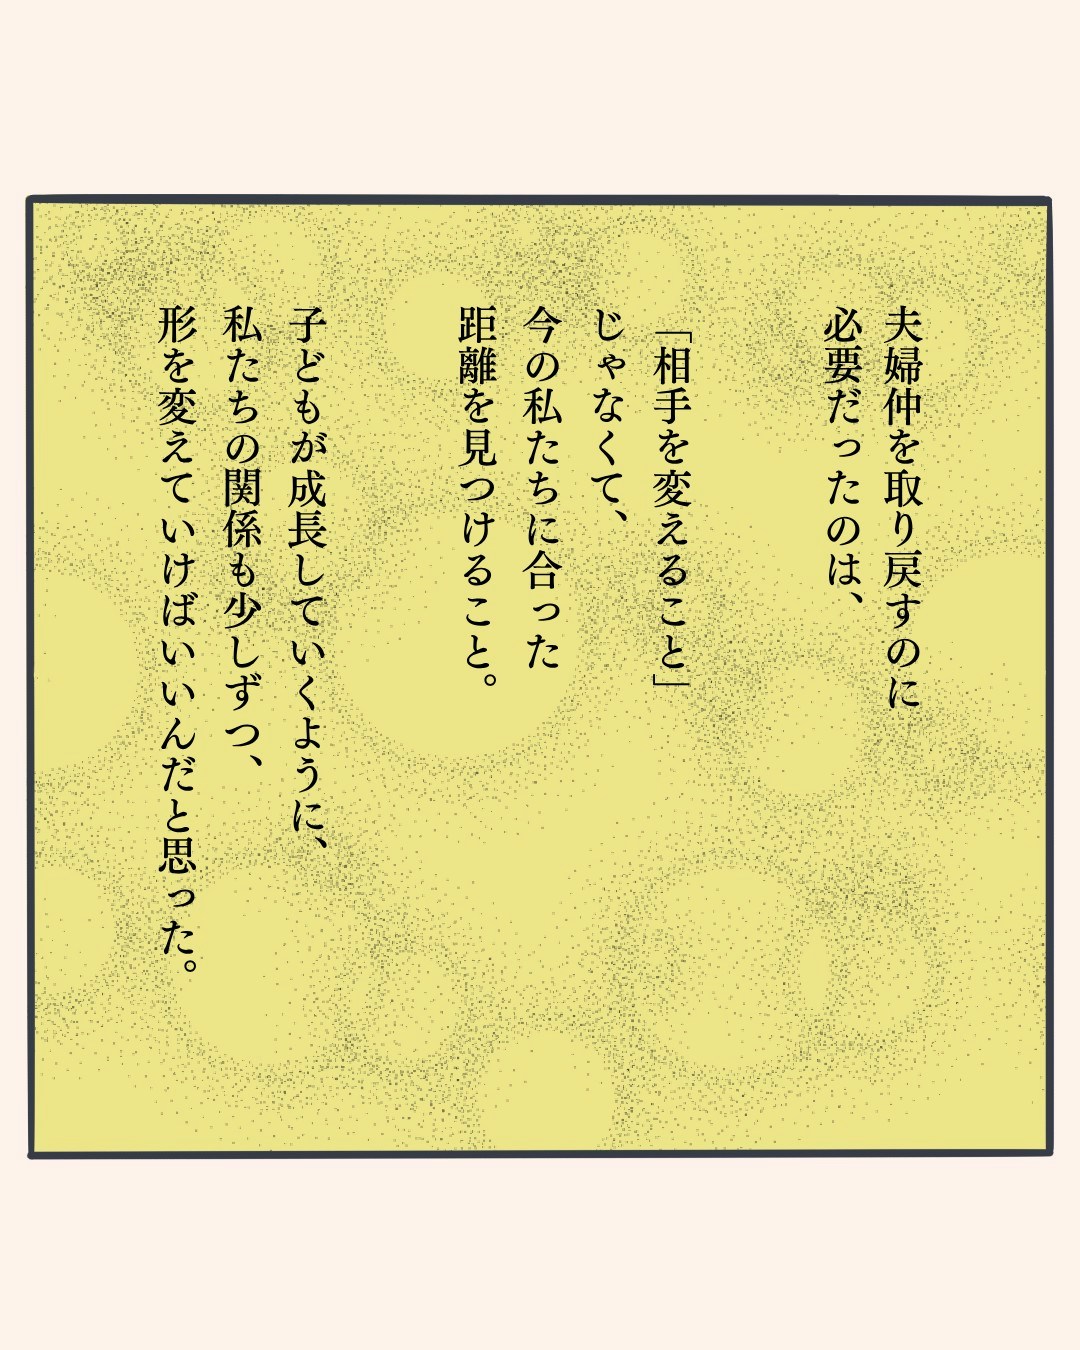 夫婦仲を取り戻すのに
必要だったのは、
「相手を変えること」
じゃなくて、
今の私たちに合った
距離を見つけること。
子どもが成長していくように、
私たちの関係も少しずつ、
形を変えていけばいいんだと思った。